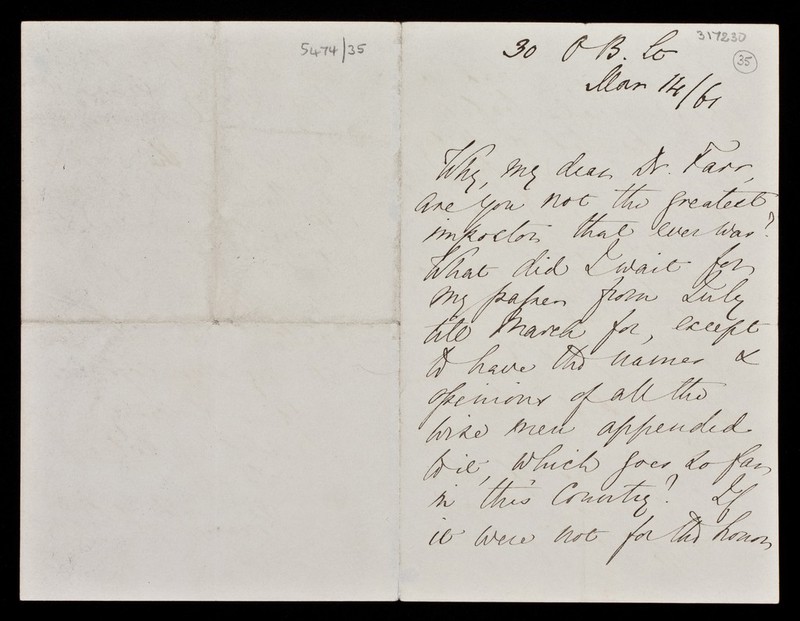 5474/35
317230
35
30 O B. St
Mar 14/61
Why, my dear Dr. Farr,
are you not the greatest
impostor that ever was?
What did I wait for
my paper from July
till March for, except
to have the names &
opinions of all the
wise men appended
to it, which goes so far
in this Country? If
it were not for the honor